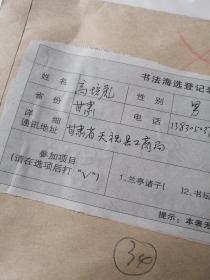 书法海选登记
姓名 高培彪 性别 男
省份 甘肃 电话 138305
详细通讯地址 甘肃省天祝县工商局
参加项目
(请在选项后打"√")
1、兰亭诸子( )2、书坛
提示:本表无
340